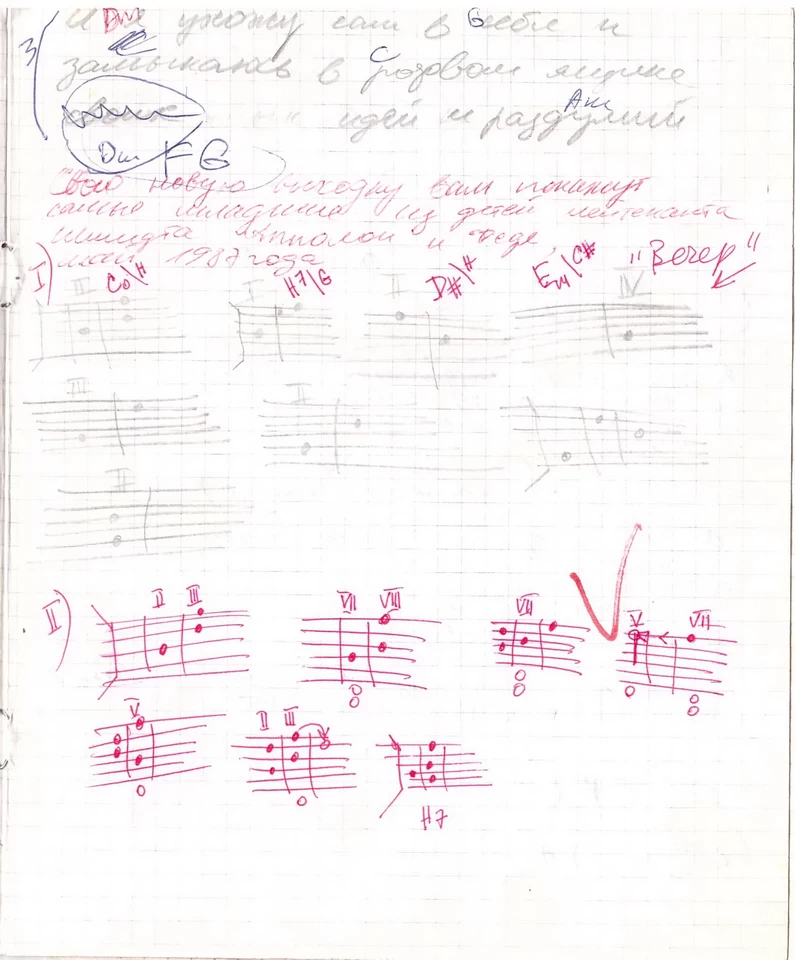 И я ухожу сам в себя и
Dm G
3
замыкаюсь в розовом ящике
C
идей и раздумий
Am
Dm F G
Свою новую выходку вам покажут
самые младшие из детей лейтенанта
шмидта Апполон и Федя,
май 1987 года
"Вечер"
I)
C0\H H7/G D#\H Em\C#
III I II IV
III II
II
II)
II III VII VIII VII V VII
V II III
H7